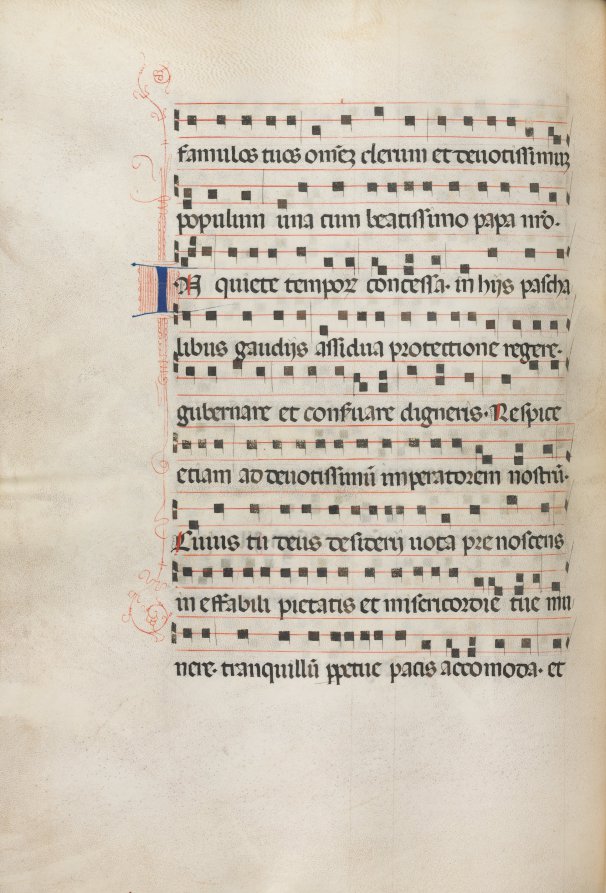 famulos tuos om̃eʒ clerum et deuotissimuʒ
populum una cum beatissimo papa nr̃o.
IN quiete tempoꝝ concessa. in hijs pascha
libus gaudijs assidua protectione regere.
gubernare et conẜuare digneris. Respice
etiam ad deuotissimũ imperatorem nostrũ.
Cuius tu deus desiderij uota prenoscens
ineffabili pietatis et misericordie tue mu
nere. tranquillũ ꝑpetue pacis accomoda. et